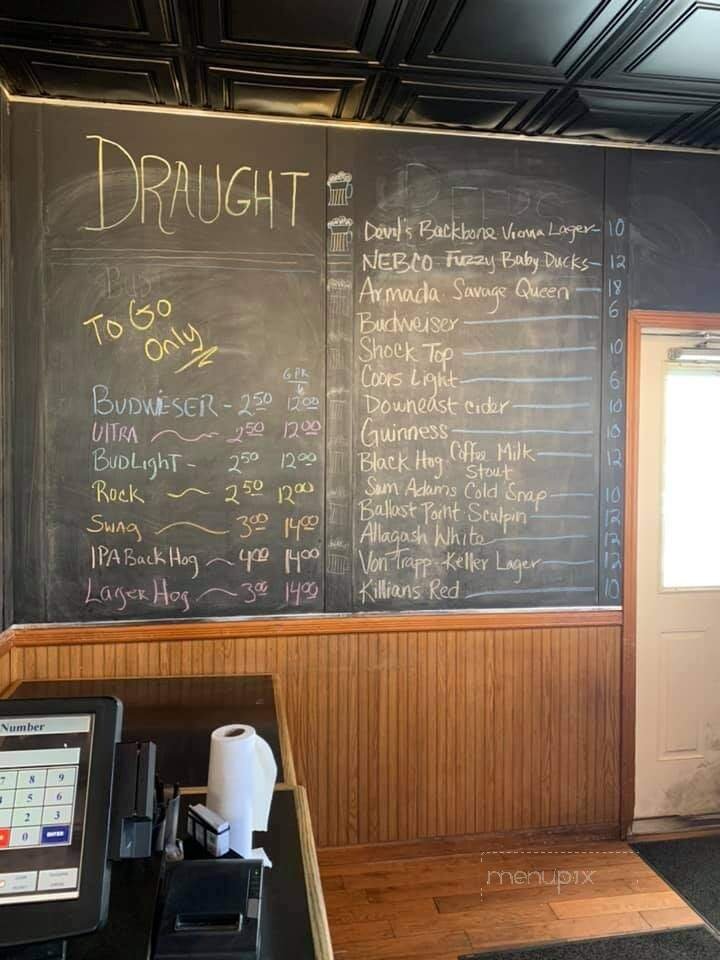 DRAUGHT
To Go
Only
6 PK
BUDWEISER - 2.50 12.00
UlTRA 2.50 12.00
BUDLIGHT - 2.50 12.00
Rock 2.50 12.00
SWAG 3.00 14.00
IPA Back Hog 4.00 14.00
Lager Hog 3.00 14.00
Devil's Backbone Vienna Lager 10
NEBCO Fuzzy Baby Ducks 12
Armada Savage Queen 18
Budweiser 6
Shock Top 10
Coors Light 6
Downeast cider 10
Guinness 10
Black Hog Coffee Milk 12
Stout
Sam Adams Cold Snap 10
Ballast Point Sculpin 12
Allagash White 12
Von Trapp - Keller Lager 12
Killians Red 10
Number
7 8 9
4 5 6
2 3
0 ENTER
menupix